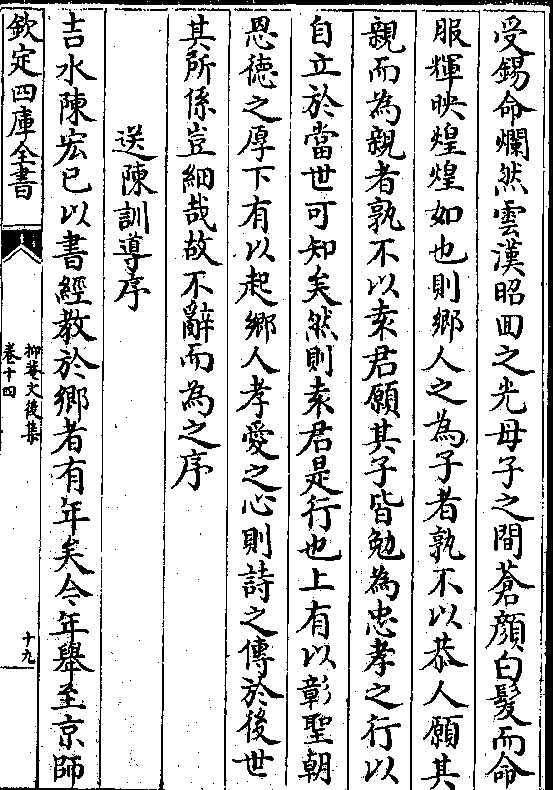 受錫命爛然雲漢昭回之光母子之間蒼顏白髮而命
服輝映煌煌如也則鄉人之為子者孰不以恭人願其
親而為親者孰不以袁君願其子皆勉為忠孝之行以
自立於當世可知矣然則袁君是行也上有以彰聖朝
恩德之厚下有以起鄉人孝愛之心則詩之傳於後世
其所係豈細哉故不辭而為之序
送陳訓導序
吉水陳宏已以書經教於鄉者有年矣今年舉至京師
欽定四庫全書
抑菴文後集
卷十四
十九